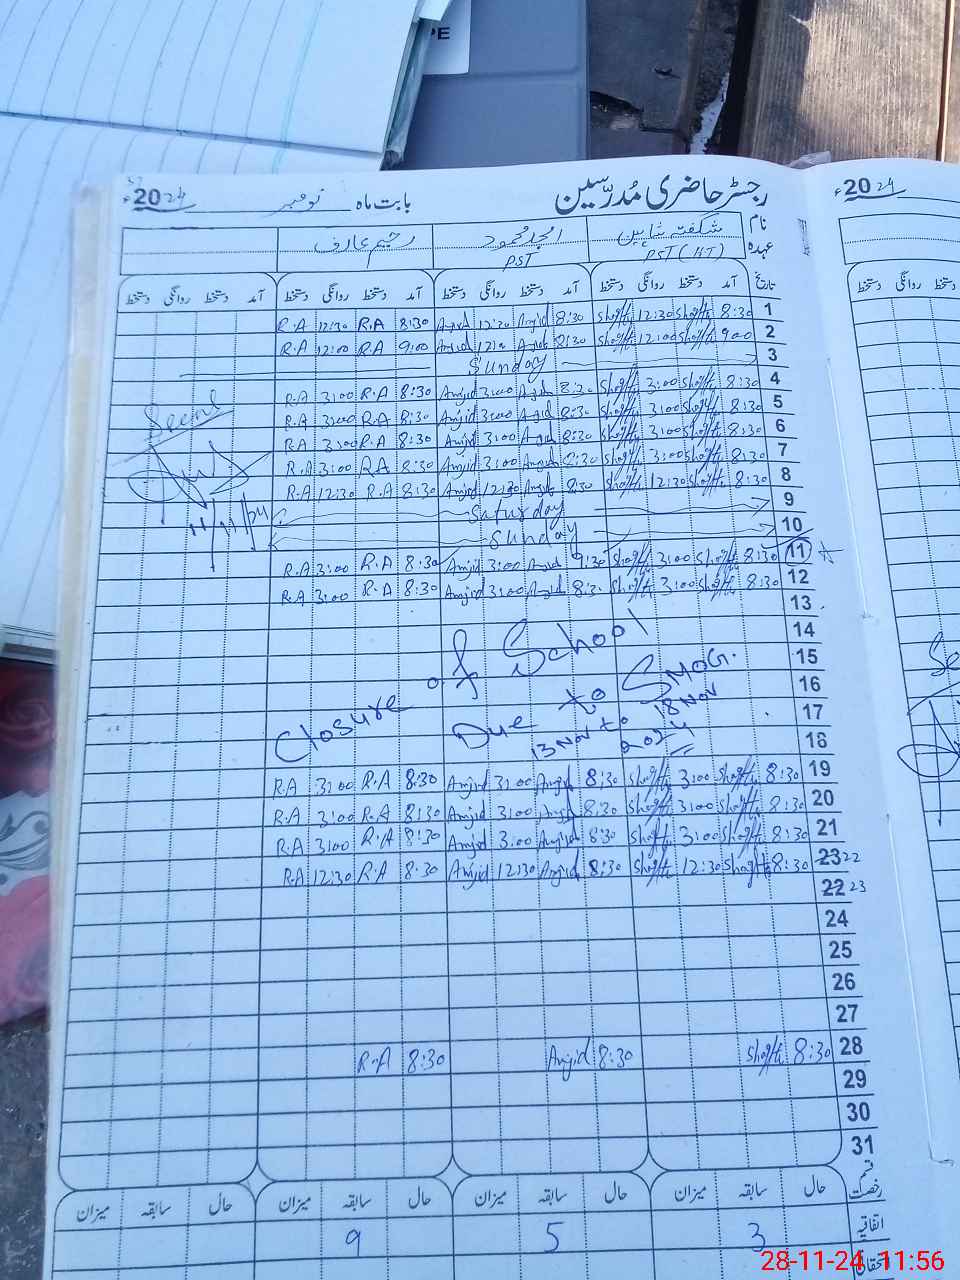 PE
رجسٹر حاضری مُدرّسین بابت ماہ نومبر 2024ء
2024ء
نام شگفتہ شاہین امجد محمود رحیم عارف
عہدہ PST (HT) PST
تاریخ آمد دستخط روانگی دستخط آمد دستخط روانگی دستخط آمد دستخط روانگی دستخط آمد دستخط روانگی دستخط
روانگی دستخط
R.A 12:30 R.A 8:30 Amjid 12:30 Amjid 8:30 Shgfta 12:30 Shgfta 8:30 1
R.A 12:00 R.A 9:00 Amjid Amjid 8:30 Shgfta 12:00 Shgfta 9:00 2
Sunday 3
R.A 3:00 R.A 8:30 Amjid 3:00 Amjid 8:30 Shgfta 3:00 Shgfta 8:30 4
R.A 3:00 R.A 8:30 Amjid 3:00 Amjid 8:30 Shgfta 3:00 Shgfta 8:30 5
Seen
R.A 3:00 R.A 8:30 Amjid 3:00 Amjid 8:30 Shgfta 3:00 Shgfta 8:30 6
R.A 3:00 R.A 8:30 Amjid 3:00 Amjid 8:30 Shgfta 3:00 Shgfta 8:30 7
R.A 12:30 R.A 8:30 Amjid 12:30 Amjid 8:30 Shgfta 12:30 Shgfta 8:30 8
11/11/24
Saturday 9
Sunday 10
R.A 3:00 R.A 8:30 Amjid 3:00 Amjid 8:30 Shgfta 3:00 Shgfta 8:30 11
R.A 3:00 R.A 8:30 Amjid 3:00 Amjid 8:30 Shgfta 3:00 Shgfta 8:30 12
13
14
Closure of School 15
Due to SMOG. 16
13 Nov to 18 Nov 17
2024 18
R.A 3:00 R.A 8:30 Amjid 3:00 Amjid 8:30 Shgfta 3:00 Shgfta 8:30 19
R.A 3:00 R.A 8:30 Amjid 3:00 Amjid 8:30 Shgfta 3:00 Shgfta 8:30 20
R.A 3:00 R.A 8:30 Amjid 3:00 Amjid 8:30 Shgfta 3:00 Shgfta 8:30 21
R.A 12:30 R.A 8:30 Amjid 12:30 Amjid 8:30 Shgfta 12:30 Shgfta 8:30 23 22
22 23
24
25
26
27
R.A 8:30 Amjid 8:30 Shgfta 8:30 28
29
30
31
قسم رخصت حال سابقہ میزان حال سابقہ میزان حال سابقہ میزان حال سابقہ میزان
اتفاقیہ 3 5 9
28-11-24 11:56